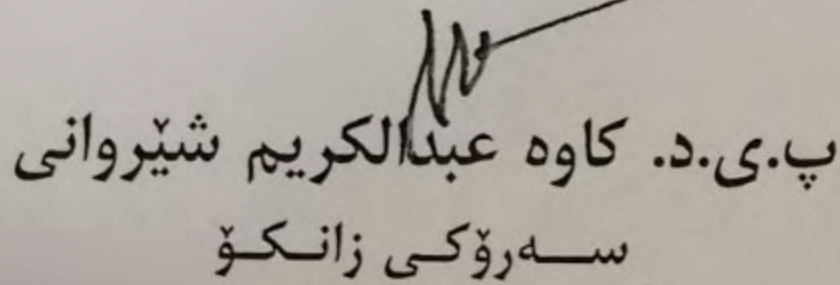 پ.ی.د. کاوە عبدالکریم شێروانی
سەرۆکی زانکۆ